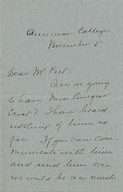 American College,
November 5'
Dear Mr Peet.
Are we going
to have Miss
Crest? I have heard
nothing of him so
far. If you can com-
municate with him
and send him over,
we would be very much